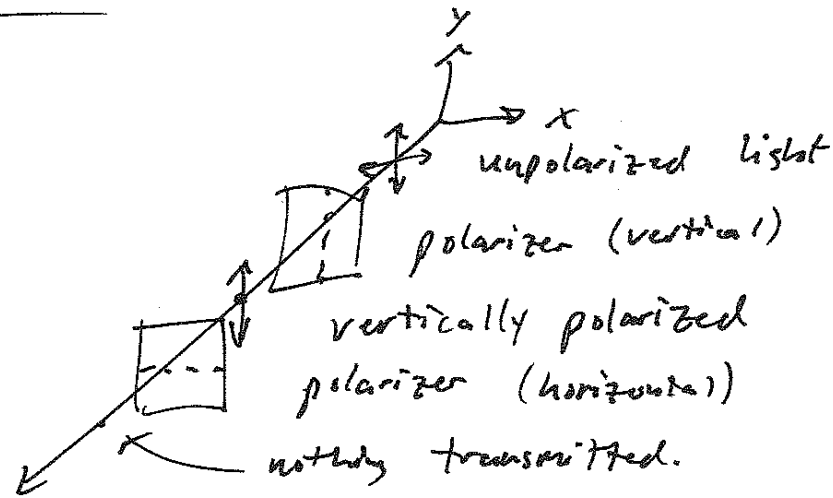 y
x
unpolarized light
polarizer (vertical)
vertically polarized
polarizer (horizontal)
nothing transmitted.